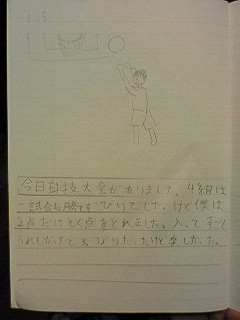 今日球技大会がありました。4組は
一試合も勝てずびりでした。けど僕は
2点だけとく点をとれました。入ってすごく
うれしかったです。びりだったけど楽しかった。